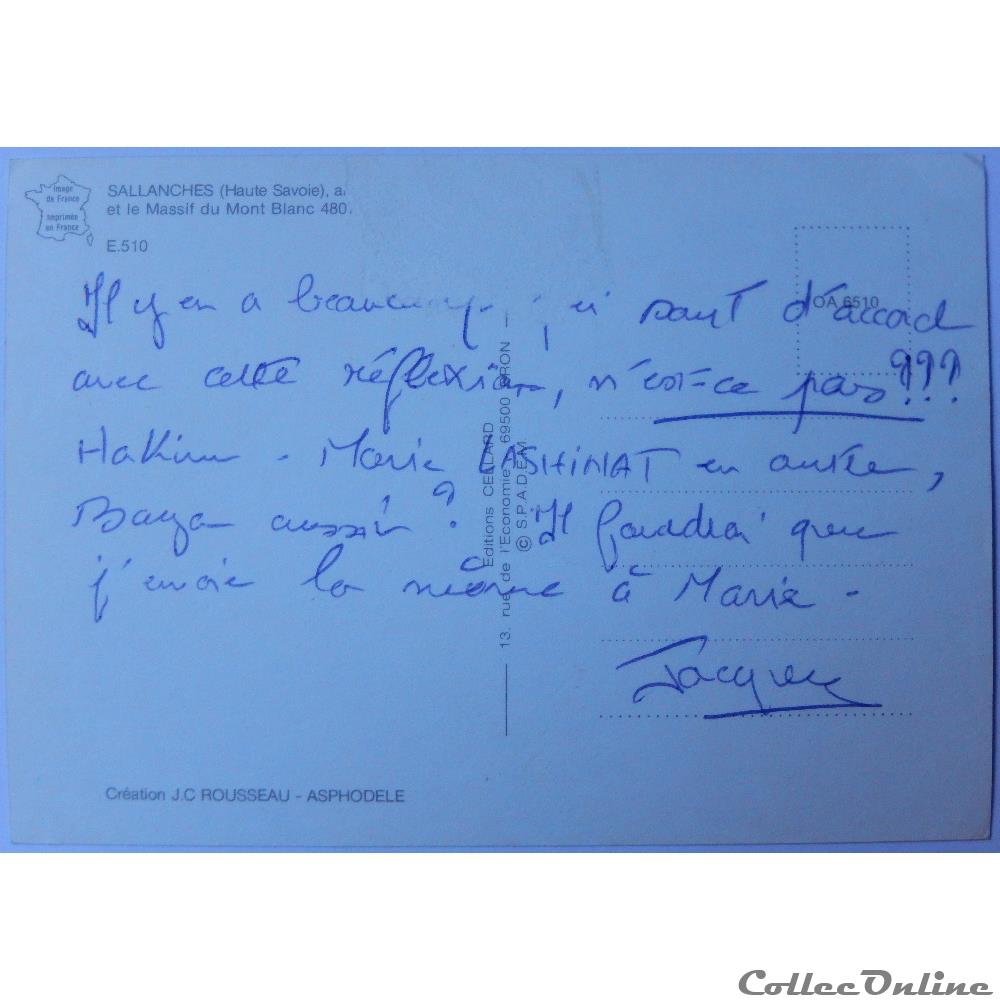 Image
de France
Imprimée
en France
SALLANCHES (Haute Savoie), a
et le Massif du Mont Blanc 480
E.510
OA 6510
Il y en a beaucoup qui sont d'accord
avec cette réflexion, n'est-ce pas???
Hakim - Marie en autre,
Baya aussi? Il faudrai que
j'envoie la même à Marie -
Jacques
Editions CELLARD
13, rue de l'Economie 69500 BRON -
© S.P.A.D.E.M
Création J.C ROUSSEAU - ASPHODELE
CollecOnline